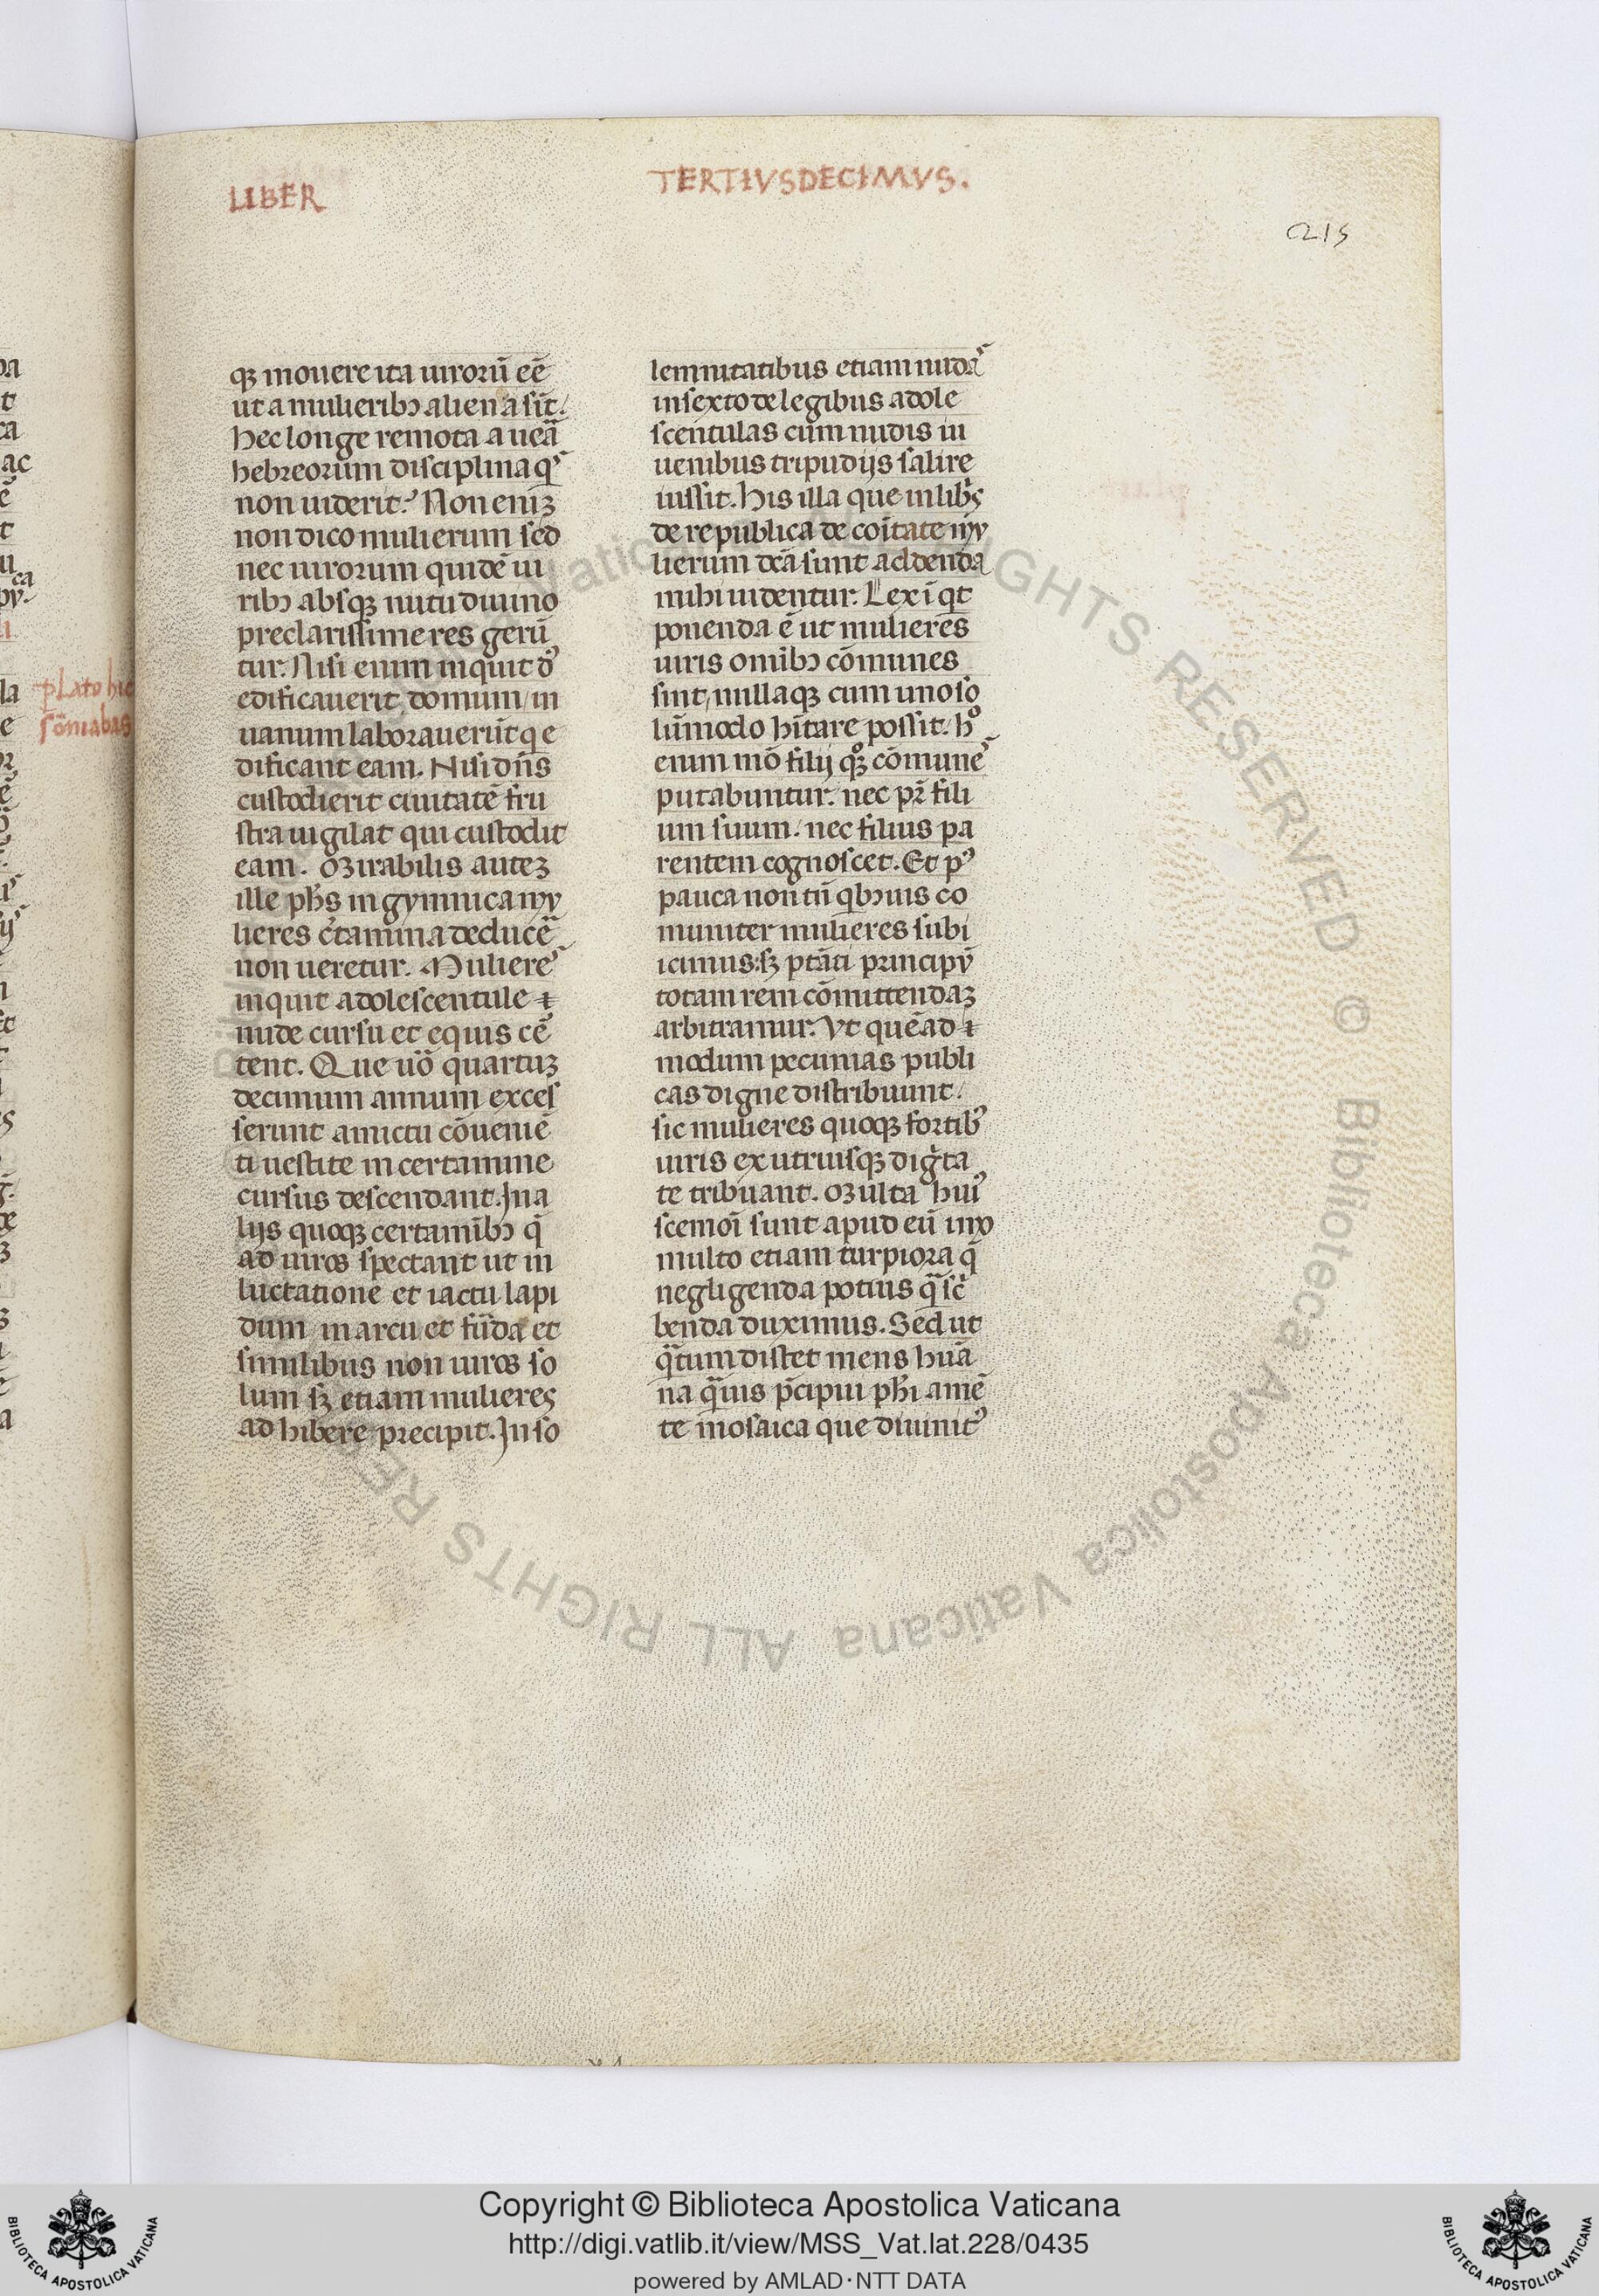 LIBER
TERTIVSDECIMVS.
215
qꝫ mouere ita uiroꝛū eē
ut a mulieribꝰ aliena sit:
hec longe remota a ueā
hebreoꝛum disciplina qͥs
non uiderit? Non eniꝫ
non dico mulierum sed
nec uiroꝛum quidē ui
ribꝰ absqꝫ nutu diuino
preclarissime res gerū
tur. Nisi enim inquit dꝰ
edificauerit domum/ in
uanum laboꝛauerūt q e
dificant eam. Nisi dn̄s
custodierit ciuitatē fru
stra uigilat qui custodit
eam. Mirabilis auteꝫ
ille ph̄s in gymnica mu
lieres c̄tamina deducē
non ueretur. Mulieres
inquit adolescentule ⁊
nude cursu et equis cē
tent. Que uō quartuꝫ
decimum annum excel
serunt amictu cōueniē
ti uestite in certamine
cursus descendant. In a
lijs quoqꝫ certamībꝰ q̄
ad uiros spectant ut in
luctatione et iactu lapi
dum in arcu et fūda et
similibus non uiros so
lum sꝫ etiam mulieres
adhibere precipit. In so
lemnitatibus etiam nudas
in sexto de legibus adole
scentulas cum nudis iu
uenibus tripudijs salire
iussit. His illa que in libris
de republica de cōitate mu
lierum dc̄a sunt addenda
mihi uidentur. Lex īqt
ponenda ē ut mulieres
uiris omībꝰ cōmunes
sint, nullaqꝫ cum uno so
lūmodo hītare possit. hͦ
enim mō filij qͦꝫ cōmunes
putabuntur. nec pr̄ fili
um suum. nec filius pa
rentem cognoscet. Et pꝰ
pauca non tn̄ qbꝰuis co
muniter mulieres subi
icimus: sꝫ ptāti principū
totam rem cōmittendaꝫ
arbitramur. Vt quēad
modum pecunias publi
cas digne distribuunt:
sic mulieres quoqꝫ foꝛtibꝰ
uiris ex utriusqꝫ digīta
te tribuant. Multa huiꝰ
scemoī sunt apud eū imo
multo etiam turpioꝛa q̄
negligenda potius q̄ sc̄
benda duximus. Sed ut
q̄tum distet mens hūa
na q̄uis p̄cipui ph̄i a mē
te mosaica que diuinitꝰ
plato hic
sōniabas
Copyright © Biblioteca Apostolica Vaticana
http://digi.vatlib.it/view/MSS_Vat.lat.228/0435
powered by AMLAD·NTT DATA
BIBLIOTECA APOSTOLICA VATICANA
BIBLIOTECA APOSTOLICA VATICANA
© Biblioteca Apostolica Vaticana ALL RIGHTS RESERVED